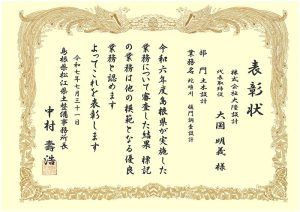 表彰状
株式会社大隆設計
代表取締役 大國 明義 様
部門 土木設計
業務名 樋門調査設計
令和六年度島根県が実施した
業務について審査した結果 標記
の業務は他の模範となる優良
業務と認めます
よってこれを表彰します
令和七年七月三十一日
島根県松江県土整備事務所長
中村 壽浩